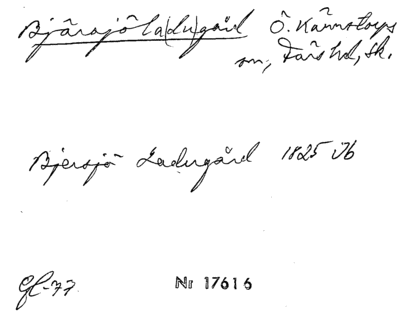 Bjärsjöla(du)gård Ö. Kärrstorps
sn, Färs hd, Sk.
Bjersjö Ladugård 1825 Ub
Gl-77
Nr 17616